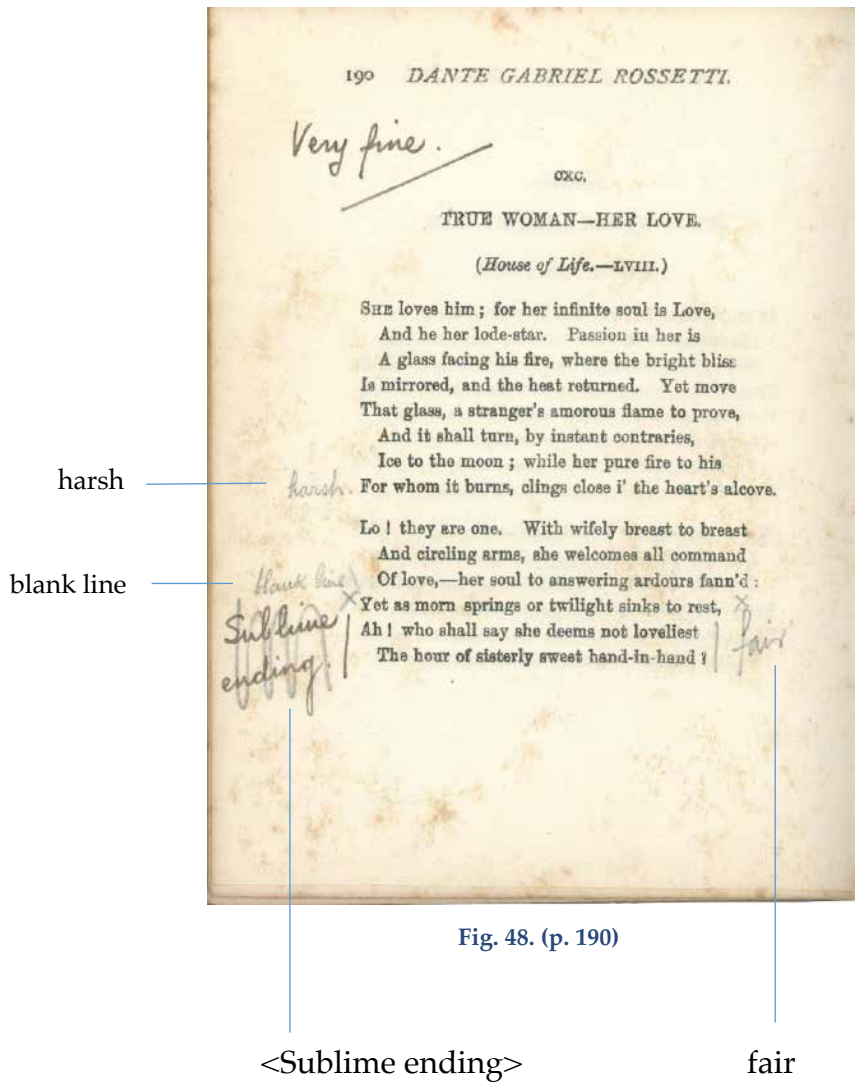 190 DANTE GABRIEL ROSSETTI.
Very fine.
CXC.
TRUE WOMAN—HER LOVE.
(House of Life.—LVIII.)
SHE loves him; for her infinite soul is Love,
And he her lode-star. Passion in her is
A glass facing his fire, where the bright bliss
Is mirrored, and the heat returned. Yet move
That glass, a stranger's amorous flame to prove,
And it shall turn, by instant contraries,
Ice to the moon; while her pure fire to his
harsh harsh. For whom it burns, clings close i' the heart's alcove.
Lo! they are one. With wifely breast to breast
And circling arms, she welcomes all command
blank line blank line Of love,—her soul to answering ardours fann'd:
× Yet as morn springs or twilight sinks to rest, ×
Sublime Ah! who shall say she deems not loveliest fair
ending. The hour of sisterly sweet hand-in-hand?
Fig. 48. (p. 190)
<Sublime ending> fair